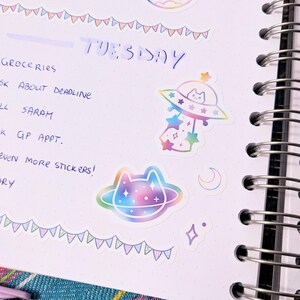 TUESDAY
GROCERIES
SK ABOUT DEADLINE
LL SARAH
K GP APPT.
EVEN MORE STICKERS!
RY